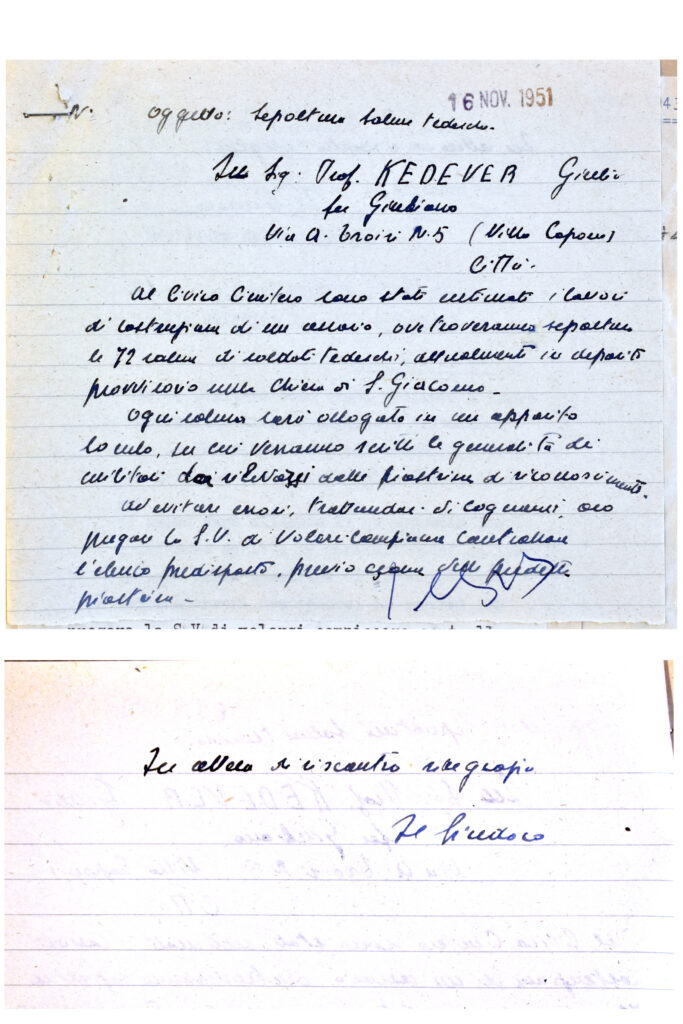 16 NOV. 1951
N. Oggetto: Sepoltura salme tedesche.
Al Sig. Prof. KEDEVER Giulio
fu Giordano
Via A. Troisi N. 5 (Villa Capone)
Città.
Al Civico Cimitero sono stati ultimati i lavori
di costruzione di un ossario, ove troveranno sepoltura
le 72 salme di soldati tedeschi, attualmente in deposito
provvisorio nella Chiesa di S. Giacomo.
Ogni salma sarà allogata in un apposito
loculo, su cui verranno scritte le generalità dei
militari rilevati dalle piastrine di riconoscimento.
Ad evitare errori, trattandosi di cognomi,
pregare la S.V. di volersi compiacere controllare
l'elenco predisposto, previo esame delle predette
piastrine.
pregare la S.V. di volersi compiacere
In attesa di riscontro ringrazio
Il Sindaco